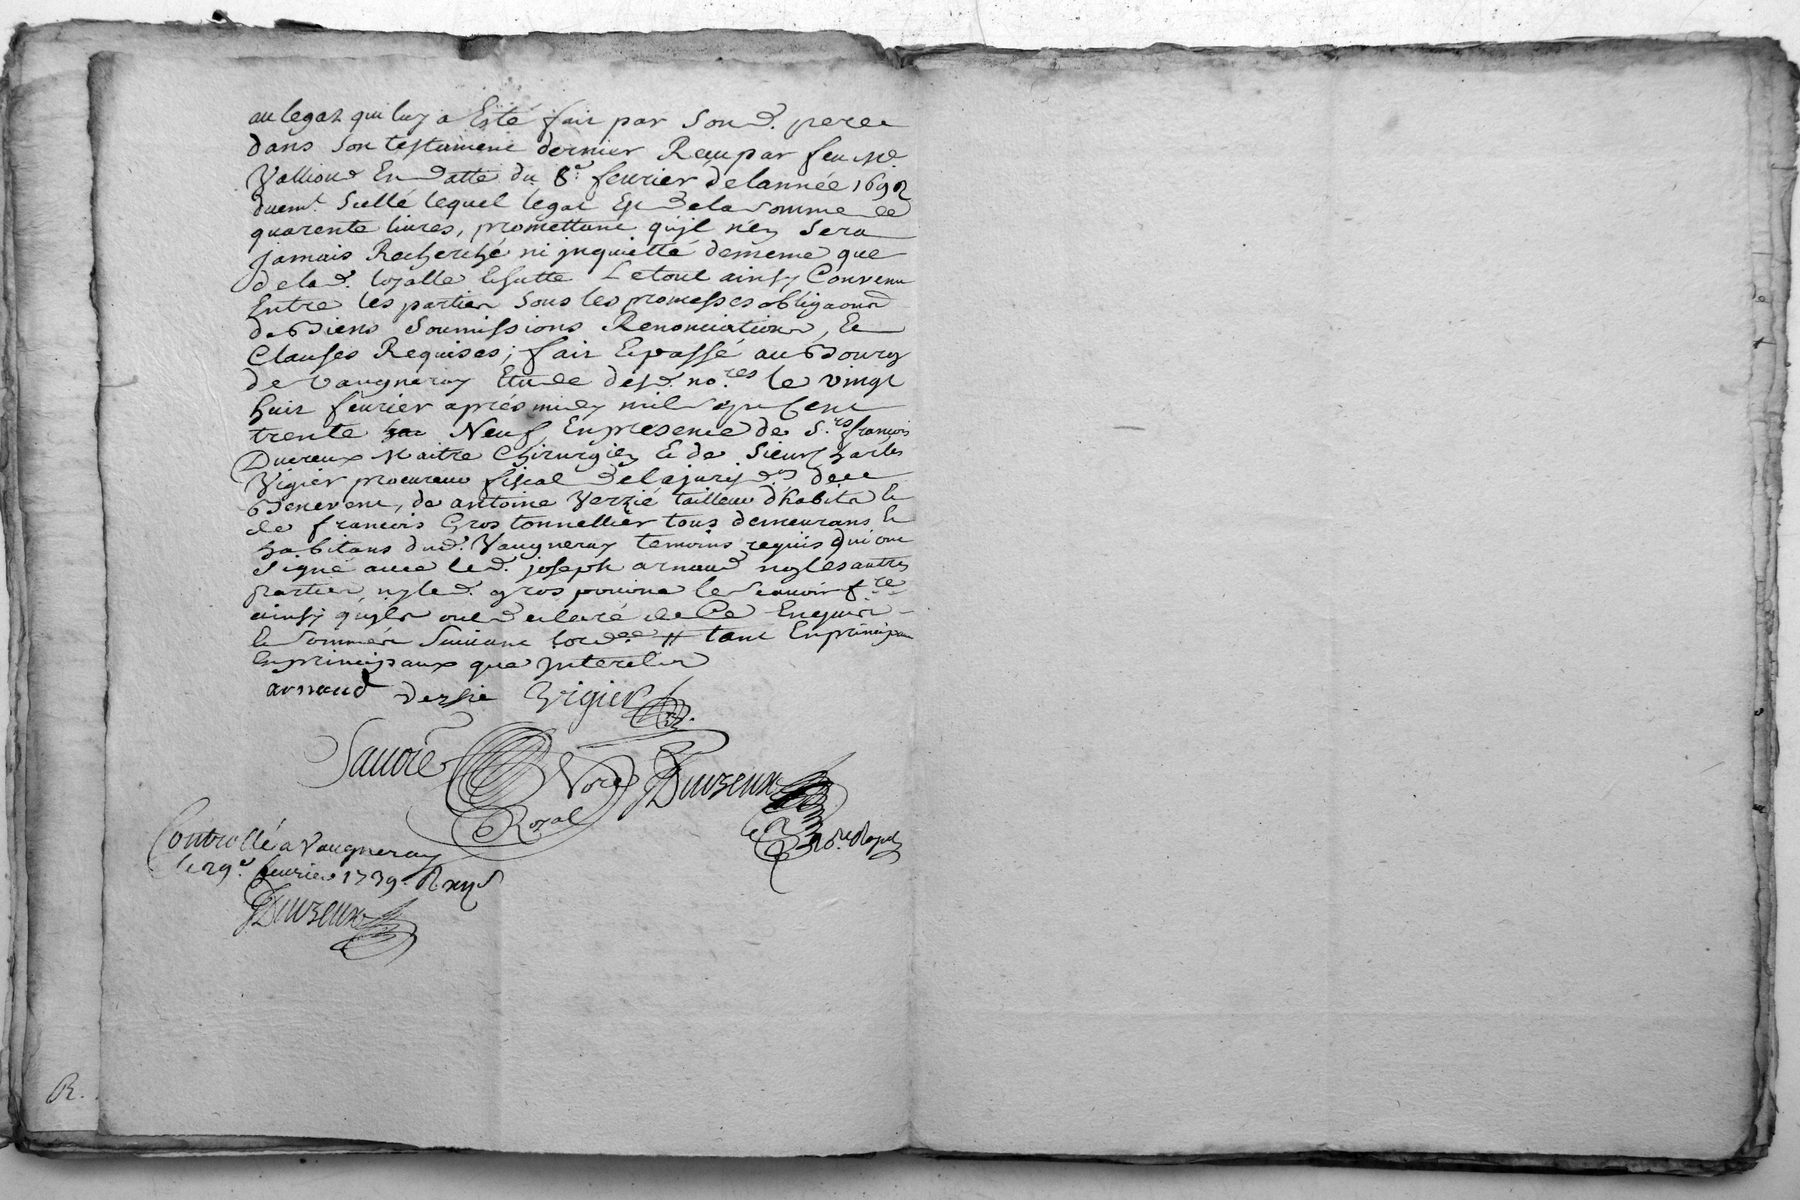 au legat qui luy a Esté fait par Sond. pere
dans Son testament dernier Receu par feu Me.
Vallioud En datte du 8e. feurier de lannée 1692
duemt. Scellé lequel légat Est dela Somme de
quarente liures, promettant qu'jl n'en Sera
jamais Recherché ni jnquietté demême que
de lad. Letout ainsy Convenu
Entre les parties Sous les promesses obligaons
de Biens Soumissions Renonciations, Et
Clauses Requises; fait Et passé au Bourg
de Vaugneray Etude desd. no.res le vingt
huit feurier aprés midy mil sept Cent
trente Neuf En presence de S.rs françois
Ducreux Maitre Chirurgien Et de Sieur Charles
Vigier procureur fiscal dela jurisd.on de
Benevent, de antoine Verzié tailleur d'habits Et
de francois Gros tonnellier tous demeurans Et
habitans dud. Vaugneray temoins requis qui ont
Signé auec led. joseph arnaud ny les autres
parties ny led. gros pour ne le scauoir f.re
ainsy qu'jls ont declaré de Ce Enquis
Et Sommés Suiuant lord.ce # tant En principau
En principaux que jnterets
arnaud Verzie Vigier
Sauoié No.re Royal
Duvzeux
No.re Royal
Controllé a Vaugneray
le 29e. feurier 1739.
Duvzeux
R.